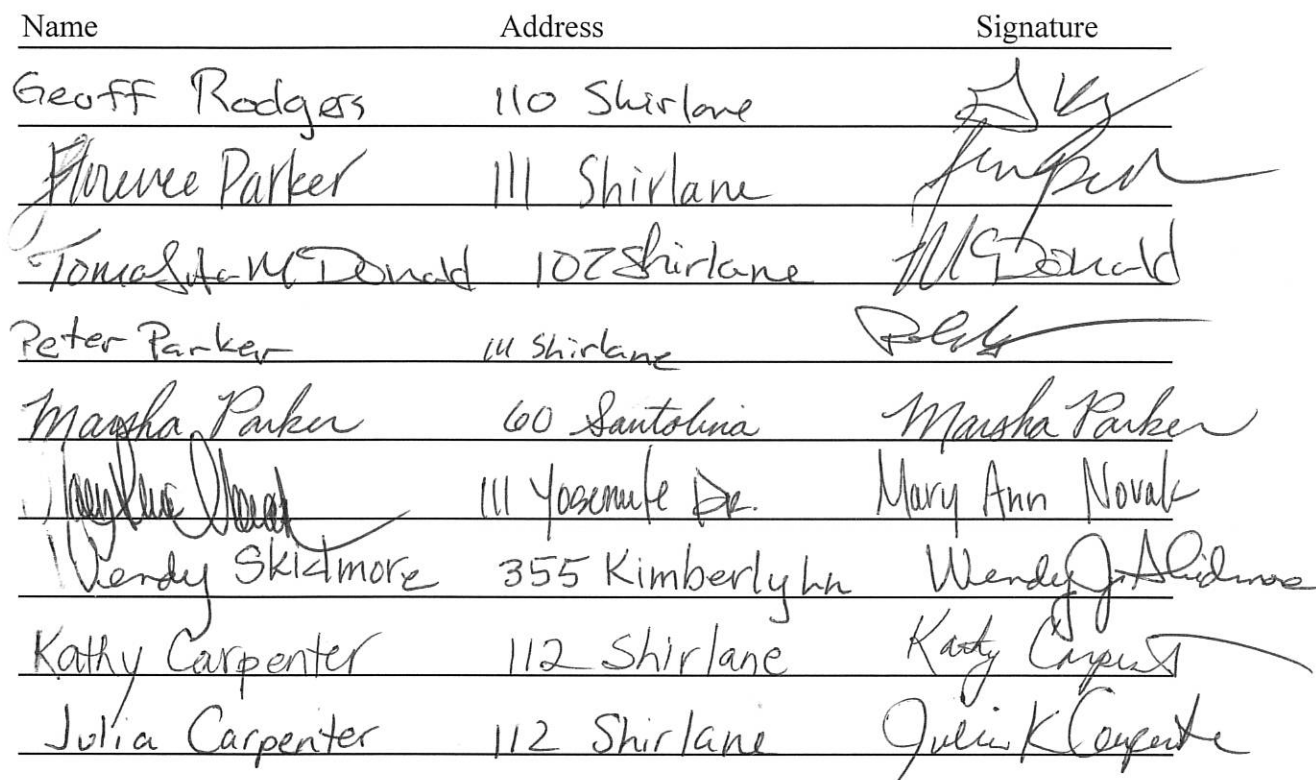 Name Address Signature
Geoff Rodgers 110 Shirlane
Florence Parker 111 Shirlane
McDonald 107 Shirlane McDonald
Peter Parker 111 Shirlane
Marsha Parker 60 Santolina Marsha Parker
111 Yosemite Dr. Mary Ann Novak
Wendy Skidmore 355 Kimberly Ln Wendy J Skidmore
Kathy Carpenter 112 Shirlane Kathy Carpenter
Julia Carpenter 112 Shirlane Julia K Carpenter